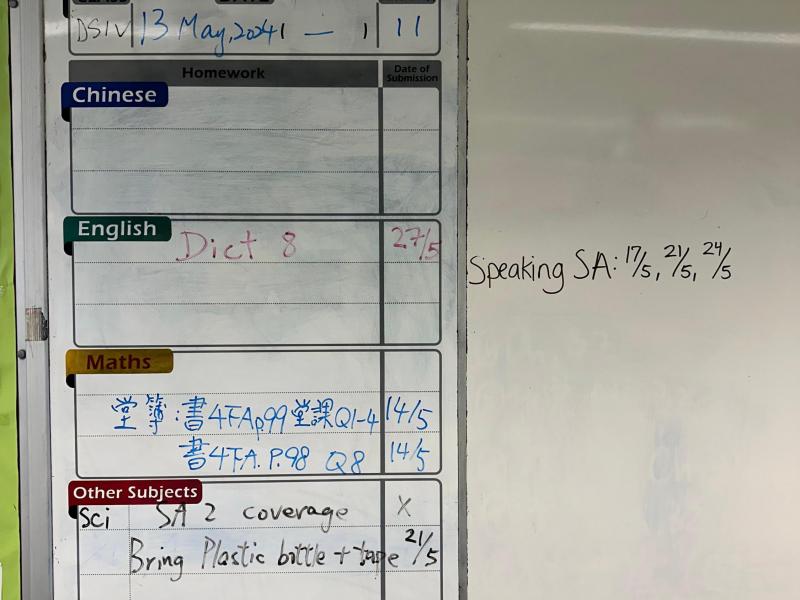 DSIV 13 May, 2024 — 11
Homework Date of Submission
Chinese
English
Dict 8 27/5
Speaking SA: 17/5, 21/5, 24/5
Maths
堂簿:書4FAp99堂課Q1-4 14/5
書4FA.P.98 Q8 14/5
Other Subjects
Sci SA 2 coverage X
Bring Plastic bottle + tape 21/5